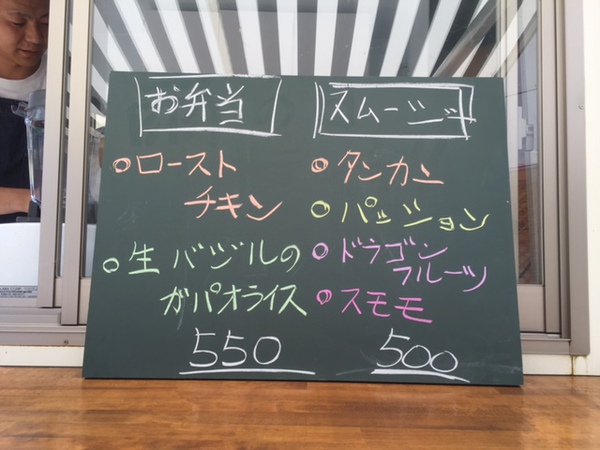 お弁当
○ロースト
チキン
○生バジルの
ガパオライス
550
スムージー
○タンカン
○パッション
○ドラゴン
フルーツ
○スモモ
500